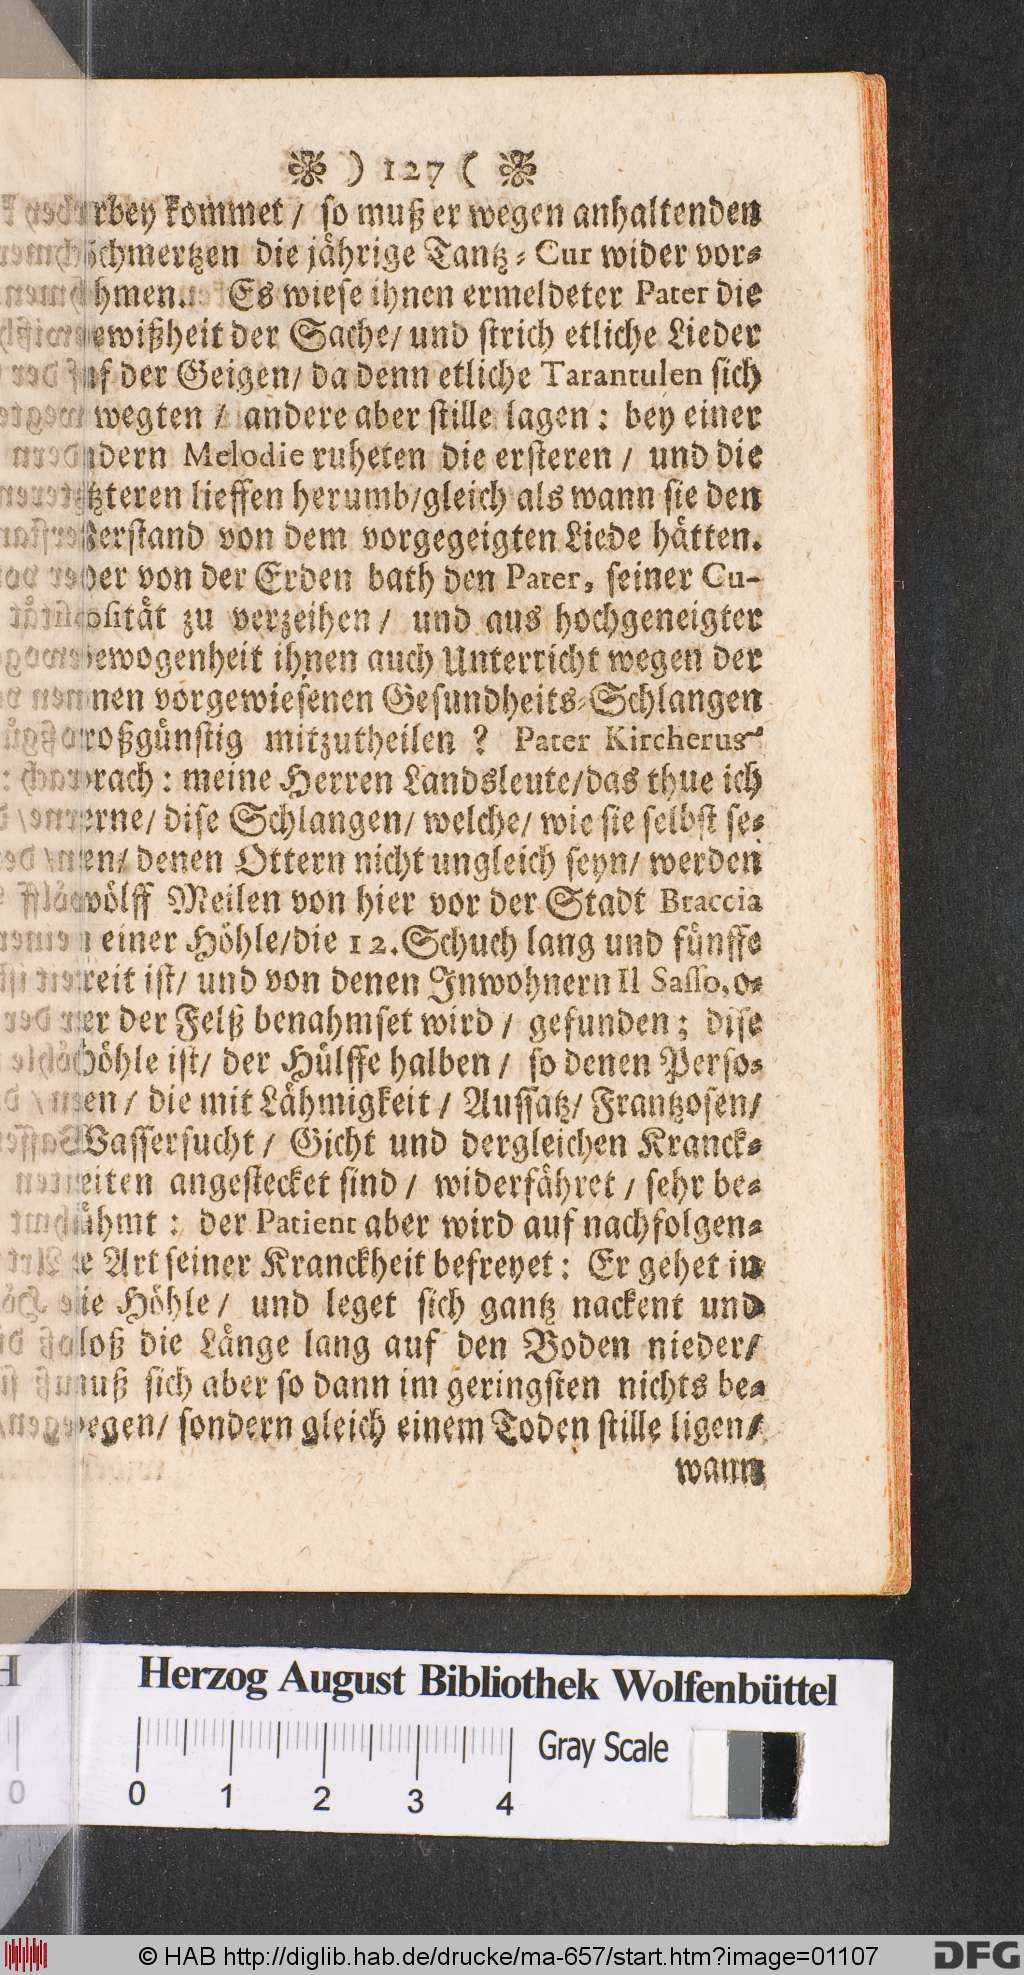 ) 127 (
rbey kommet / so muß er wegen anhaltenden
Schmertzen die jährige Tantz-Cur wider vor-
hmen. Es wiese ihnen ermeldeter Pater die
ewißheit der Sache / und strich etliche Lieder
uf der Geigen / da denn etliche Tarantulen sich
wegten / andere aber stille lagen : bey einer
ndern Melodie ruheten die ersteren / und die
tzteren lieffen herumb / gleich als wann sie den
Verstand von dem vorgegeigten Liede hätten.
er von der Erden bath den Pater, seiner Cu-
osität zu verzeihen / und aus hochgeneigter
ewogenheit ihnen auch Unterricht wegen der
nen vorgewiesenen Gesundheits-Schlangen
roßgünstig mitzutheilen ? Pater Kircherus
rach : meine Herren Landsleute / das thue ich
erne / dise Schlangen / welche / wie sie selbst se-
en / denen Ottern nicht ungleich seyn / werden
wölff Meilen von hier vor der Stadt Braccia
einer Höhle / die 12. Schuch lang und fünffe
reit ist / und von denen Inwohnern Il Sasso, o-
er der Felß benahmset wird / gefunden ; dise
Höhle ist / der Hülffe halben / so denen Perso-
en / die mit Lähmigkeit / Aussatz / Frantzosen /
Wassersucht / Gicht und dergleichen Kranck-
eiten angestecket sind / widerfähret / sehr be-
ühmt : der Patient aber wird auf nachfolgen-
e Art seiner Kranckheit befreyet : Er gehet in
ie Höhle / und leget sich gantz nackent und
loß die Länge lang auf den Boden nieder /
muß sich aber so dann im geringsten nichts be-
egen / sondern gleich einem Toden stille ligen /
wann
H
Herzog August Bibliothek Wolfenbüttel
0 0 1 2 3 4 Gray Scale
© HAB http://diglib.hab.de/drucke/ma-657/start.htm?image=01107
DFG